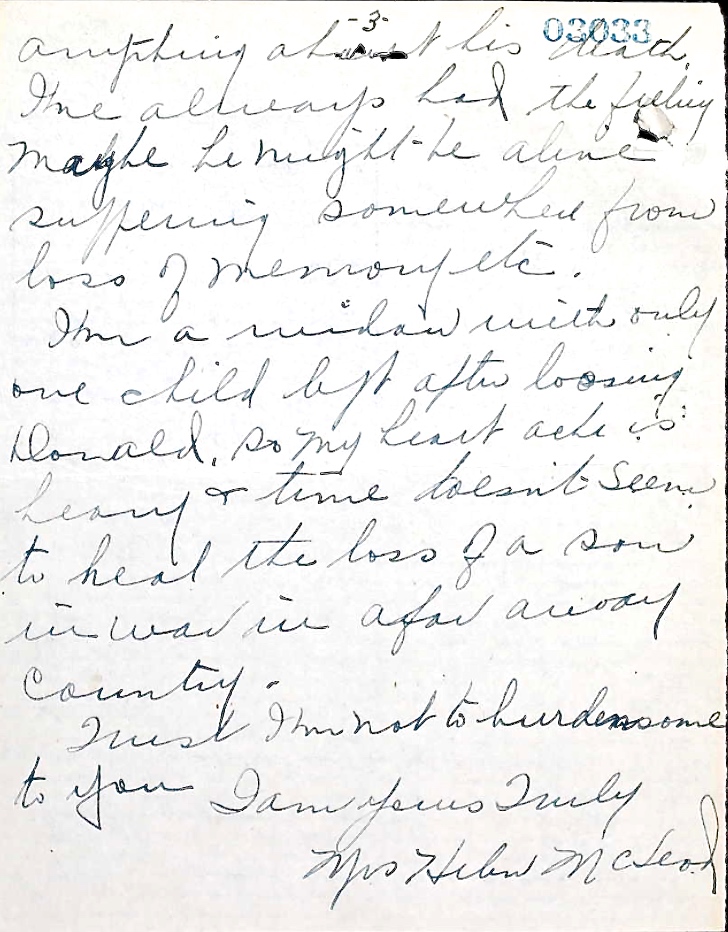 -3-
03033
anything about his death.
I've always had the feeling
maybe he might be alive
suffering somewhere from
loss of memory etc.
I'm a widow with only
one child left after loosing
Donald, so my heart ache is
heavy & time doesn't seem
to heal the loss of a son
in war in a far away
country.
Trust I'm not to burdensome
to you I am yours Truly
Mrs Helen McLeod